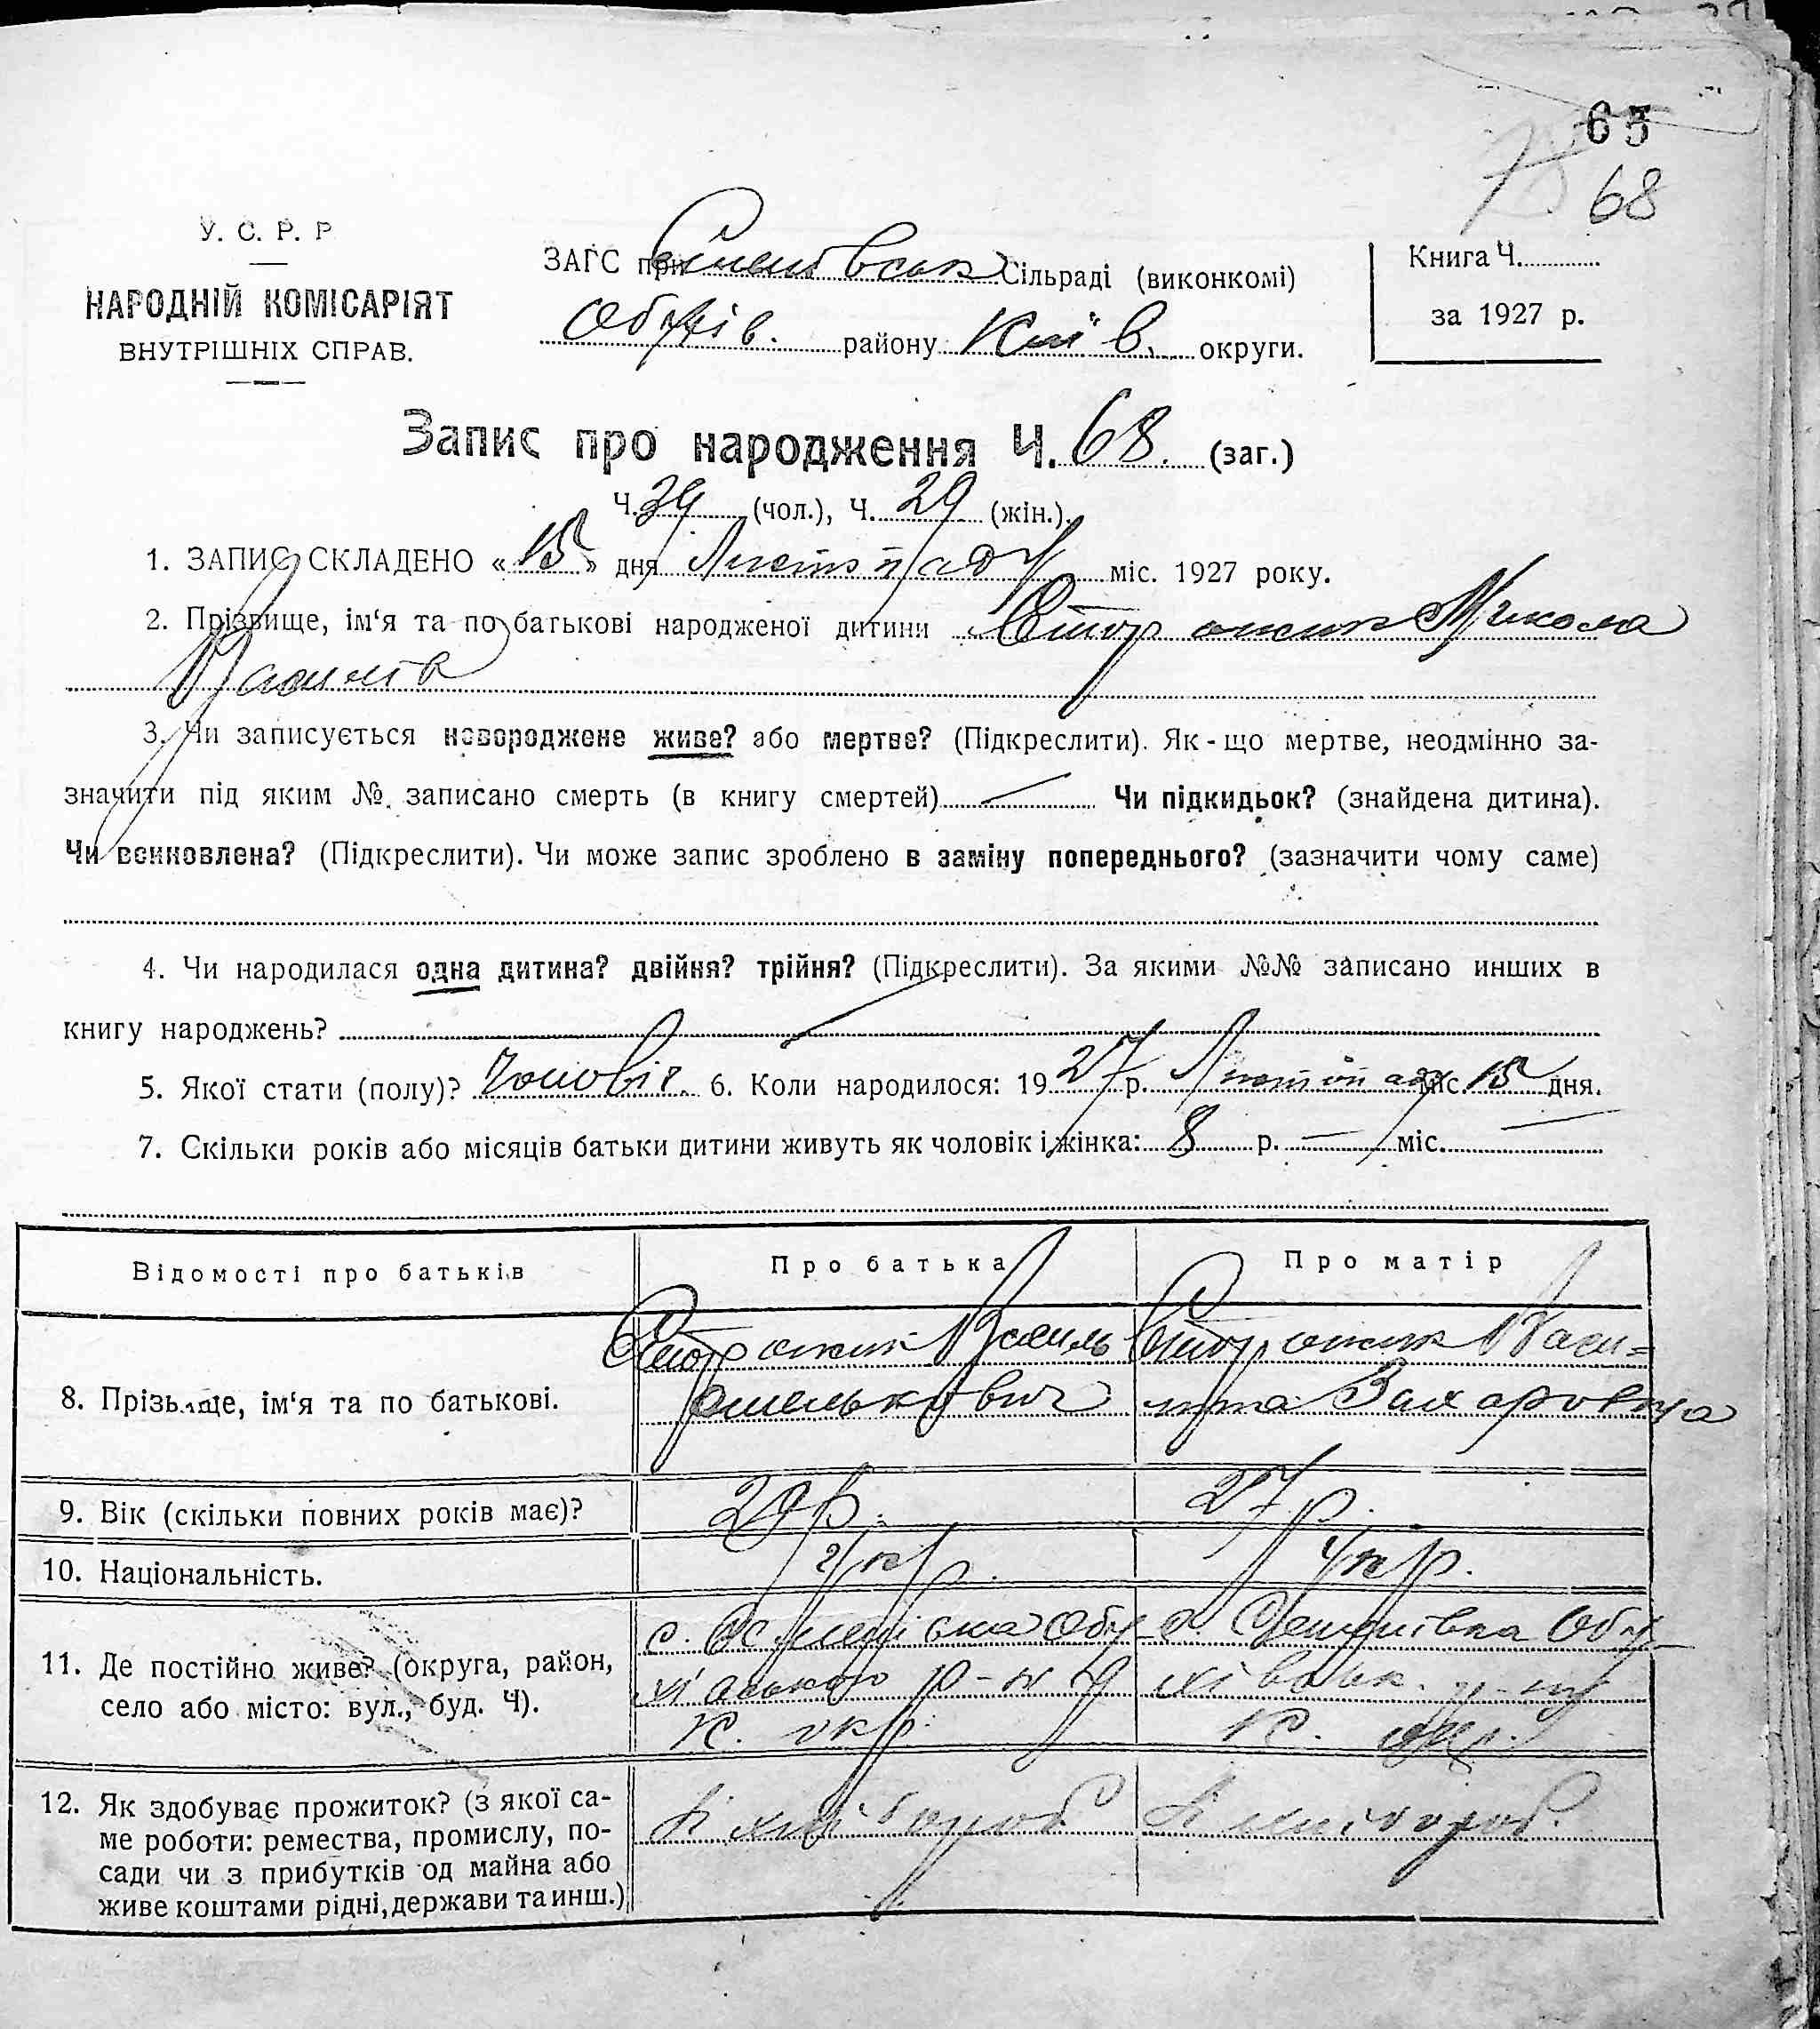 65
68
У. С. Р. Р
НАРОДНІЙ КОМІСАРІЯТ
ВНУТРІШНІХ СПРАВ.
ЗАГС при Сільраді (виконкомі)
Обухів. району Київ. округи.
Книга Ч.
за 1927 р.
Запис про народження Ч. 68. (заг.)
Ч. 39 (чол.), Ч. 29 (жін.).
1. ЗАПИС СКЛАДЕНО «15» дня Листопаду міс. 1927 року.
2. Прізвище, ім'я та по батькові народженої дитини Сторожик Микола
Василів
3. Чи записується новороджене живе? або мертве? (Підкреслити). Як-що мертве, неодмінно за-
значити під яким №. записано смерть (в книгу смертей) — Чи підкидьок? (знайдена дитина).
Чи всиновлена? (Підкреслити). Чи може запис зроблено в заміну попереднього? (зазначити чому саме)
4. Чи народилася одна дитина? двійня? трійня? (Підкреслити). За якими №№ записано инших в
книгу народжень? —
5. Якої стати (полу)? Чоловіч. 6. Коли народилося: 1927 р. Листопаду міс. 15 дня.
7. Скільки років або місяців батьки дитини живуть як чоловік і жінка: 8 р. — міс. —
Відомості про батьків
Про батька
Про матір
8. Прізвище, ім'я та по батькові.
Сторожик Василь
Омелькович
Сторожик Васи-
лина Захаровна
9. Вік (скільки повних років має)?
29 р.
27 р.
10. Національність.
Укр.
Укр.
11. Де постійно живе? (округа, район,
село або місто: вул., буд. Ч).
с. Обу-
хівського р-ну
К. окр.
с. Обу-
хівськ. р-ну
К. окр.
12. Як здобуває прожиток? (з якої са-
ме роботи: ремества, промислу, по-
сади чи з прибутків од майна або
живе коштами рідні, держави та инш.)
Хлібороб
Хлібороб.